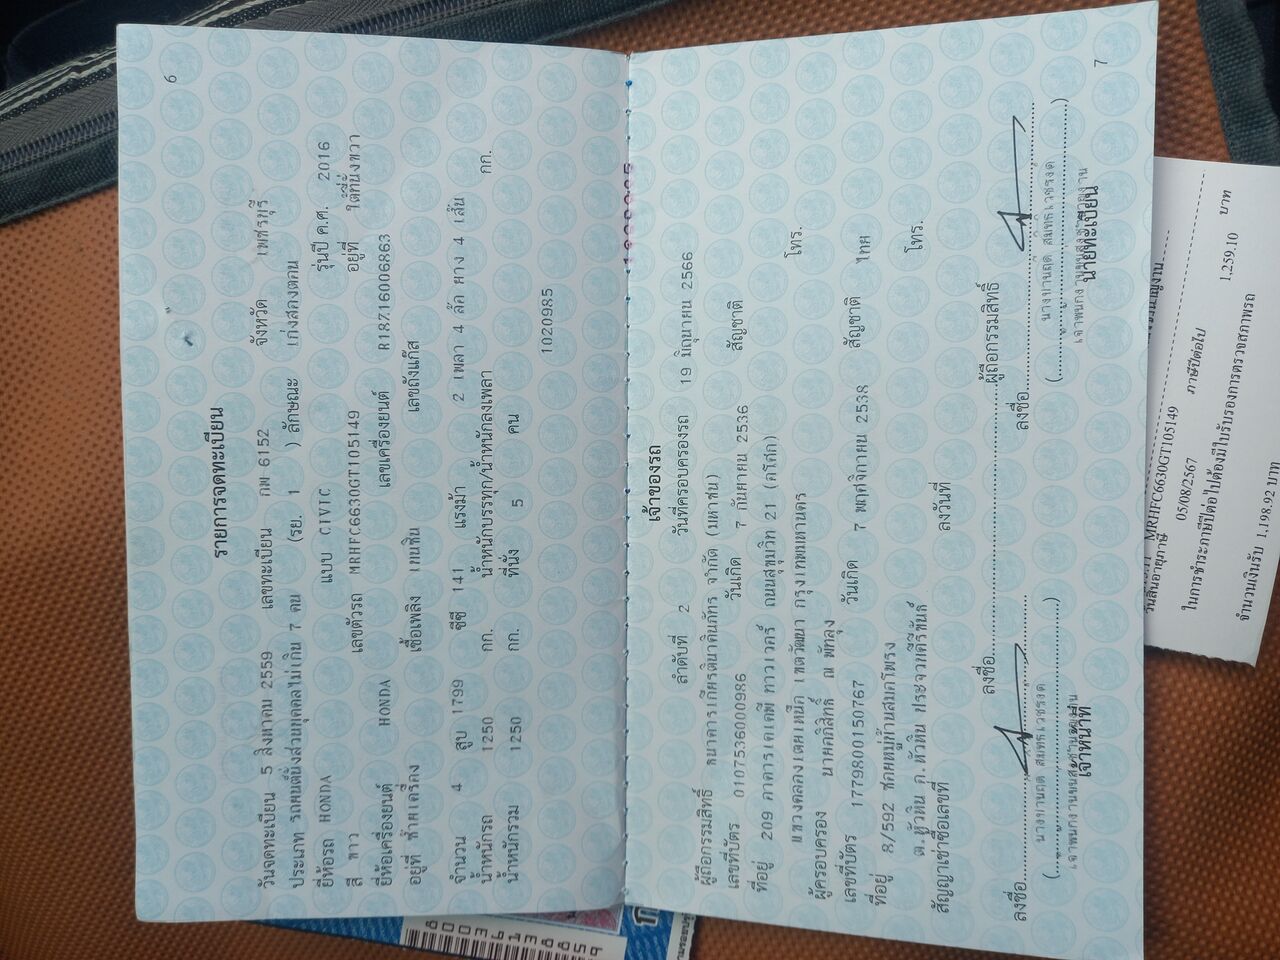 6
รายการจดทะเบียน
วันจดทะเบียน 5 สิงหาคม 2559 เลขทะเบียน กพ 6152 จังหวัด เพชรบุรี
ประเภท รถยนต์นั่งส่วนบุคคลไม่เกิน 7 คน (รย. 1 ) ลักษณะ เก๋งสองตอน
ยี่ห้อรถ HONDA แบบ CIVIC รุ่นปี ค.ศ. 2016
สี ขาว เลขตัวรถ MRHFC6630GT105149 อยู่ที่ ใต้ที่นั่งขวา
ยี่ห้อเครื่องยนต์ HONDA เลขเครื่องยนต์ R18Z16006863
อยู่ที่ ซ้ายเครื่อง เชื้อเพลิง เบนซิน เลขถังแก๊ส
จำนวน 4 สูบ 1799 ซีซี 141 แรงม้า 2 เพลา 4 ล้อ ยาง 4 เส้น
น้ำหนักรถ 1250 กก. น้ำหนักบรรทุก/น้ำหนักลงเพลา กก.
น้ำหนักรวม 1250 กก. ที่นั่ง 5 คน
1020985
7
เจ้าของรถ
ลำดับที่ 2 วันที่ครอบครองรถ 19 มิถุนายน 2566
ผู้ถือกรรมสิทธิ์ ธนาคารเกียรตินาคินภัทร จำกัด (มหาชน)
เลขที่บัตร 0107536000986 วันเกิด 7 กันยายน 2536 สัญชาติ
ที่อยู่ 209 อาคารเคเคพี ทาวเวอร์ ถนนสุขุมวิท 21 (อโศก)
แขวงคลองเตยเหนือ เขตวัฒนา กรุงเทพมหานคร โทร.
ผู้ครอบครอง นายอภิสิทธิ์ ณ พัทลุง
เลขที่บัตร 1779800150767 วันเกิด 7 พฤศจิกายน 2538 สัญชาติ ไทย
ที่อยู่ 8/592 ซอยหมู่บ้านสมอโพรง
ต.หัวหิน อ.หัวหิน ประจวบคีรีขันธ์ โทร.
สัญญาเช่าซื้อเลขที่ ลงวันที่
ลงชื่อ ผู้ถือกรรมสิทธิ์
ลงชื่อ ลงชื่อ
เจ้าหน้าที่ นายทะเบียน
MRHFC6630GT105149
วันสิ้นอายุภาษี 05/08/2567 ภาษีปีต่อไป 1,259.10 บาท
ในการชำระภาษีปีต่อไปต้องมีใบรับรองการตรวจสภาพรถ
จำนวนเงินรับ 1,198.92 บาท